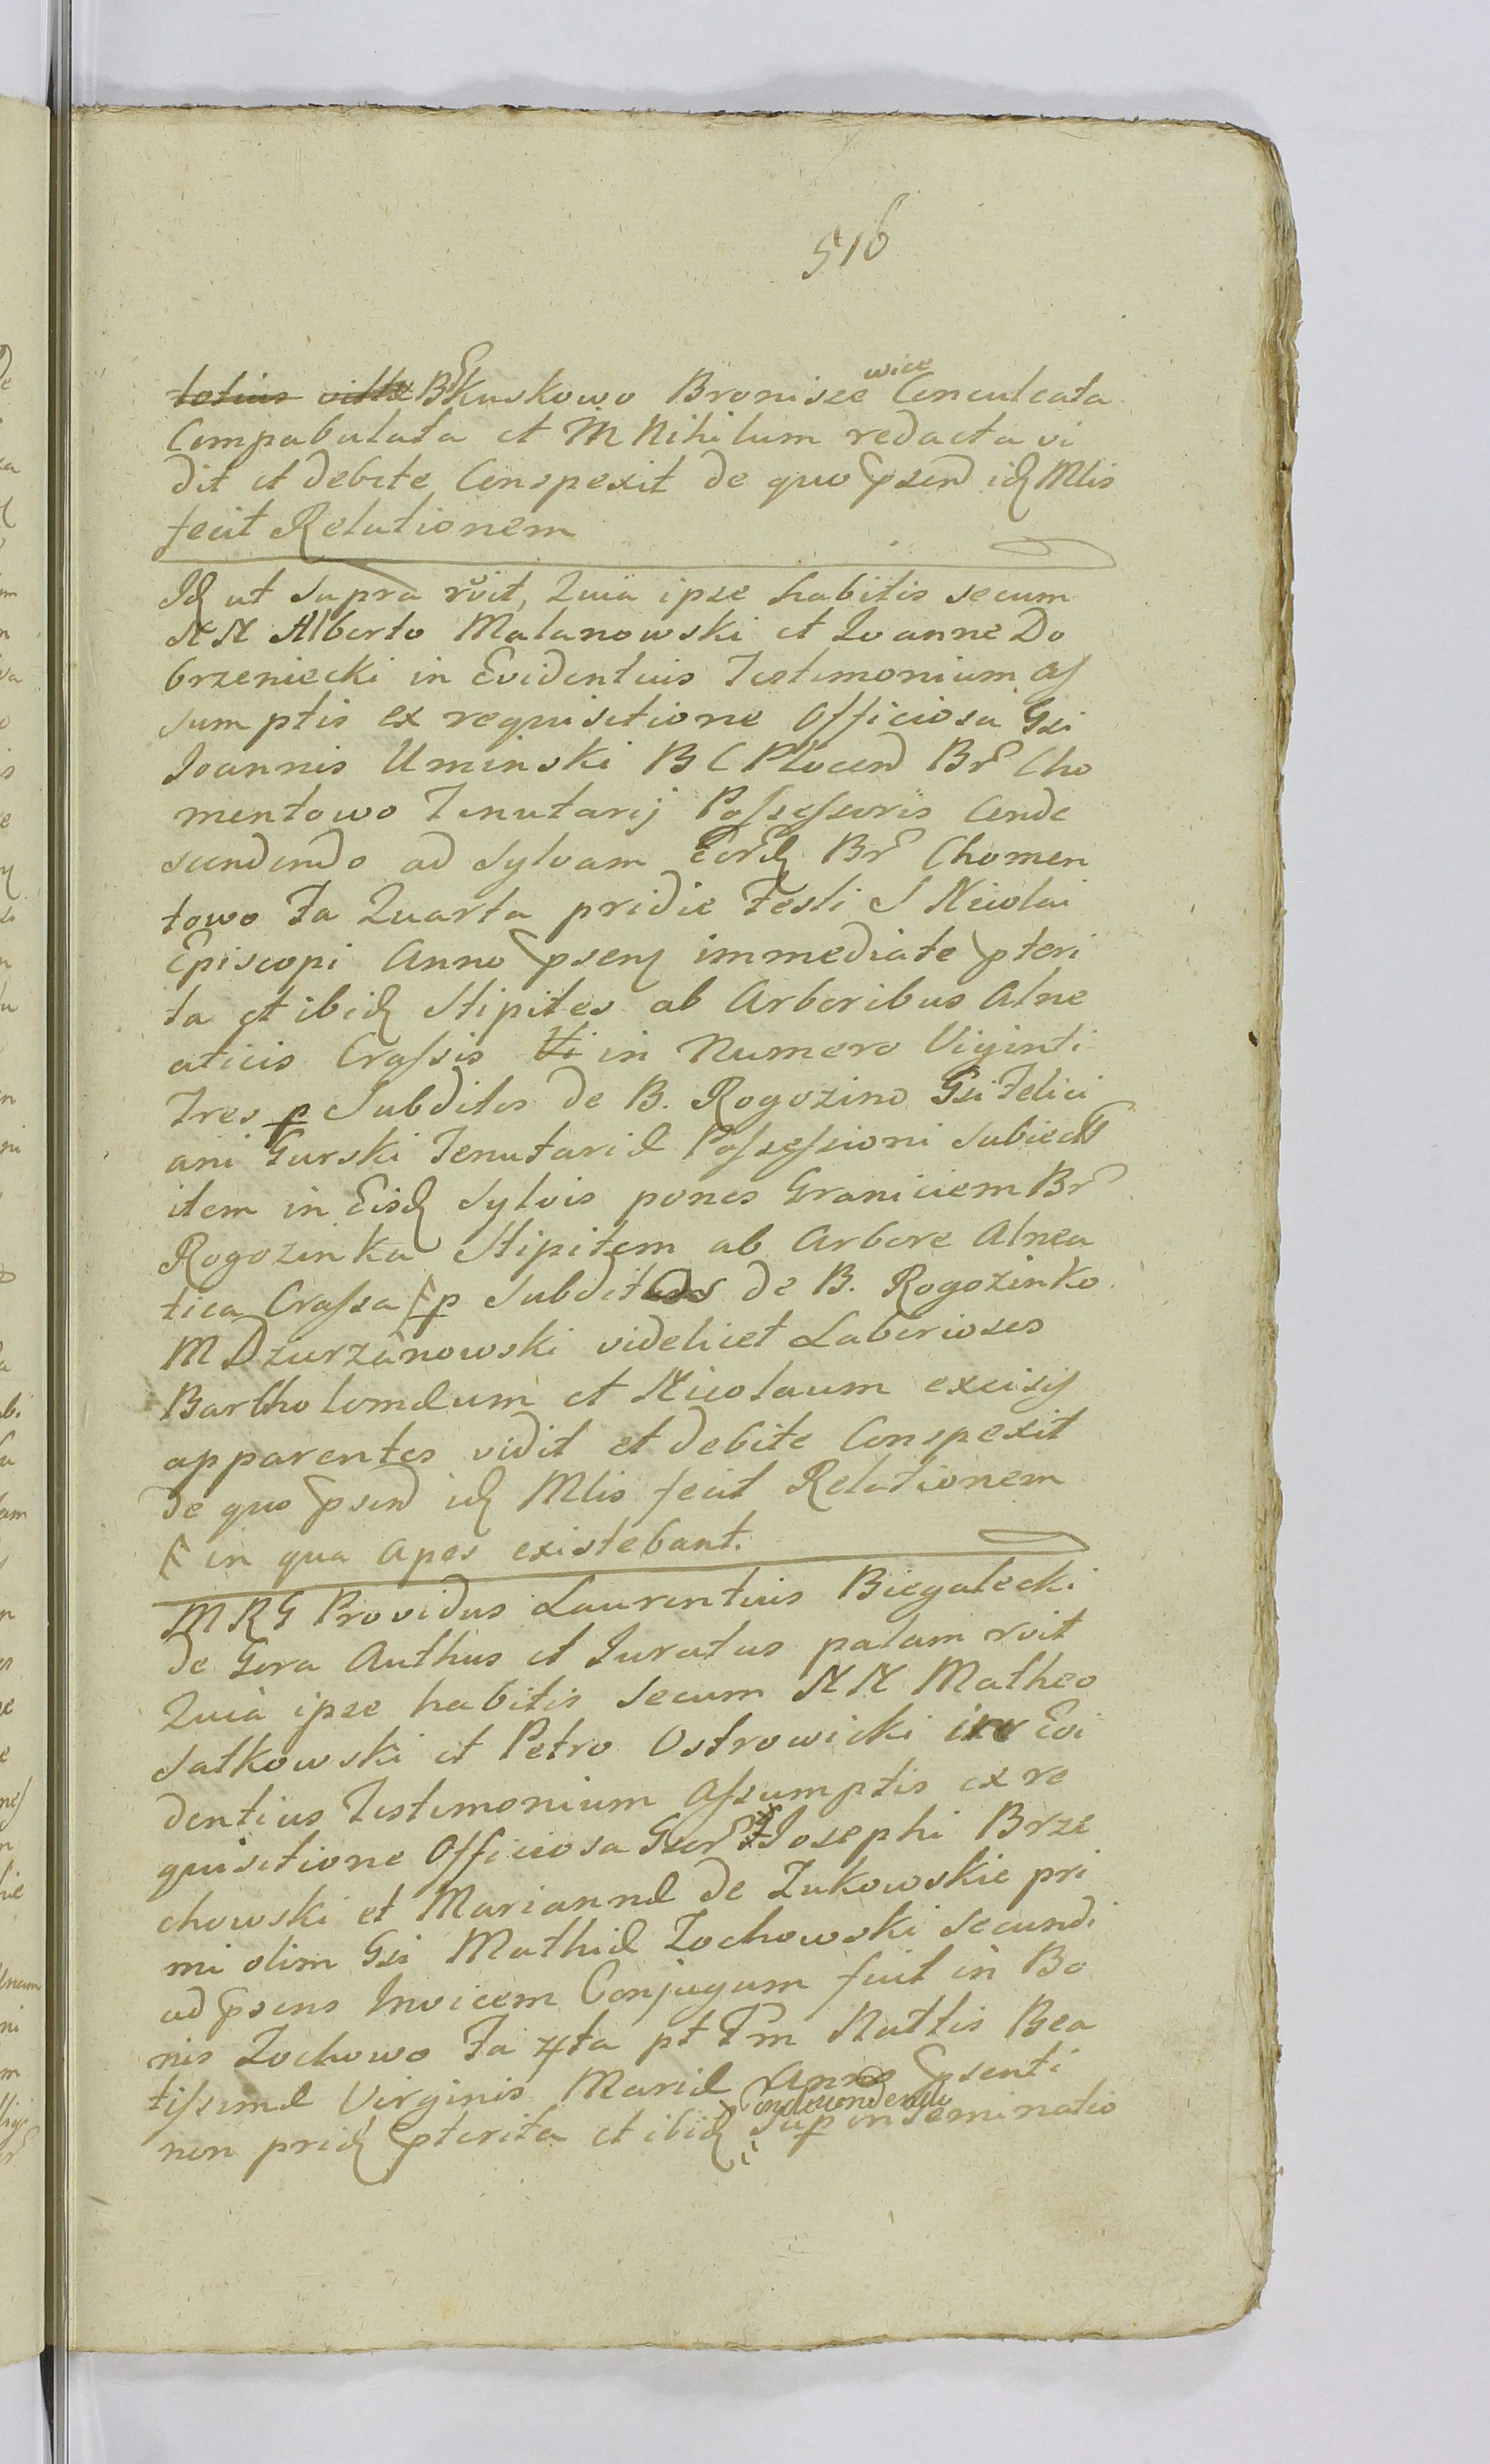 516
totius villæ Br Kuskowo Bronisze wice Conculcata
Compabulata et in Nihilum redacta vi
dit et debite Conspexit de quo psend idq Mlis
fecit Relationem
Idq ut Supra roit, Quia ipse habitis secum
NN Alberto Malanowski et Joanne Do
brzeniecki in Evidentius Testimonium as
sumptis ex requisitione Officiosa Gsi
Joannis Uminski B C Plocend Br Cho
mentowo Tenutarij Possessoris Conde
scendendo ad Sylvam Eorq Br Chomen
towo Fa Quarta pridie Festi S Nicolai
Episcopi Anno psenq immediate pteri
ta et ibidq Stipites ab Arboribus Alne
aticis Crassis Vi in Numero Viginti
Tres p Subditos de B. Rogozino Gsi Felici
ani Gurski Tenutariæ Possessioni Subiectos
item in Eisdq Sylvis pones Graniciem Br
Rogozinka Stipitem ab Arbore Alnea
tica Crassa p Subditos de B. Rogozinko
M Dziurzanowski videlicet Laboriosos
Bartholomæum et Nicolaum excisq
apparentes vidit et debite Conspexit
de quo psend idq Mlis fecit Relationem
in qua Apes existebant.
MRG Providus Laurentius Biegalecki
de Gora Authus et Juratus palam roit
Quia ipse habitis Secum NN Matheo
Satkowski et Petro Ostrowicki in Evi
dentius Testimonium Assumptis ex re
quisitione Officiosa Gsor Josephi Brze
chowski et Mariannæ de Zukowskie pri
mi olim Gsi Mathiæ Zochowski Secundi
ad psens Invicem Conjugum fuit in Bo
nis Zochowo Fa 4ta pt Fm Nattis Bea
tissimæ Virginis Mariæ Anno psenti
non pridq pterita et ibidq Condescendendo Sup inseminatio